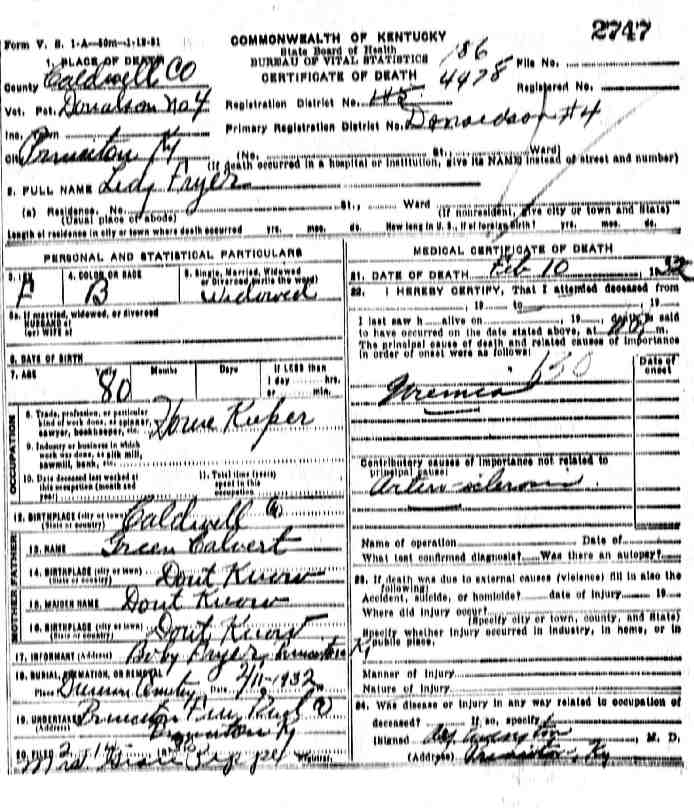 2747
Form V. S. 1-A—50m—1-12-31
COMMONWEALTH OF KENTUCKY
State Board of Health
BUREAU OF VITAL STATISTICS
CERTIFICATE OF DEATH
1. PLACE OF DEATH
County Caldwell CO
Vot. Pct. Donalson No 4
Inc. Town
City Princeton Ky
186
4478
File No.
Registered No.
Registration District No. 145
Primary Registration District No. Donaldson #4
(No. St., Ward)
(If death occurred in a hospital or institution, give its NAME instead of street and number)
2. FULL NAME Ledy Fryer
(a) Residence. No. St., Ward
(Usual place of abode) (If nonresident, give city or town and State)
Length of residence in city or town where death occurred yrs. mos. ds. How long in U. S., if of foreign birth? yrs. mos. ds.
PERSONAL AND STATISTICAL PARTICULARS
3. SEX F
4. COLOR OR RACE B
5. Single, Married, Widowed
or Divorced (write the word)
Widowed
5a. If married, widowed, or divorced
HUSBAND of
(or) WIFE of
6. DATE OF BIRTH
7. AGE 80 Months Days If LESS than
1 day hrs.
or min.
OCCUPATION
8. Trade, profession, or particular
kind of work done, as spinner,
sawyer, bookkeeper, etc. House Keeper
9. Industry or business in which
work was done, as silk mill,
sawmill, bank, etc.
10. Date deceased last worked at
this occupation (month and
year)
11. Total time (years)
spent in this
occupation
12. BIRTHPLACE (city or town) Caldwell Co
(State or country)
FATHER
13. NAME Green Calvert
14. BIRTHPLACE (city or town) Dont Know
(State or country)
MOTHER
15. MAIDEN NAME Dont Know
16. BIRTHPLACE (city or town) Dont Know
(State or country)
17. INFORMANT Boby Fryer, Princeton Ky
(Address)
18. BURIAL, CREMATION, OR REMOVAL
Place Cemetery Date 2/11-1932
19. UNDERTAKER Princeton Co
(Address) Princeton Ky
20. FILED 2 14
Registrar.
MEDICAL CERTIFICATE OF DEATH
21. DATE OF DEATH Feb 10, 1932
22. I HEREBY CERTIFY, That I attended deceased from
, 19 to , 19
I last saw h alive on , 19 , said
to have occurred on the date stated above, at m.
The principal cause of death and related causes of importance
in order of onset were as follows:
Date of
onset
130
Uremia
Contributory causes of importance not related to
principal cause:
Arterio-sclerosis
Name of operation Date of
What test confirmed diagnosis? Was there an autopsy?
23. If death was due to external causes (violence) fill in also the
following:
Accident, suicide, or homicide? date of injury 19
Where did injury occur?
(Specify city or town, county, and State)
Specify whether injury occurred in industry, in home, or in
public place.
Manner of injury
Nature of injury
24. Was disease or injury in any way related to occupation of
deceased? If so, specify
(Signed) , M. D.
(Address) Princeton, Ky